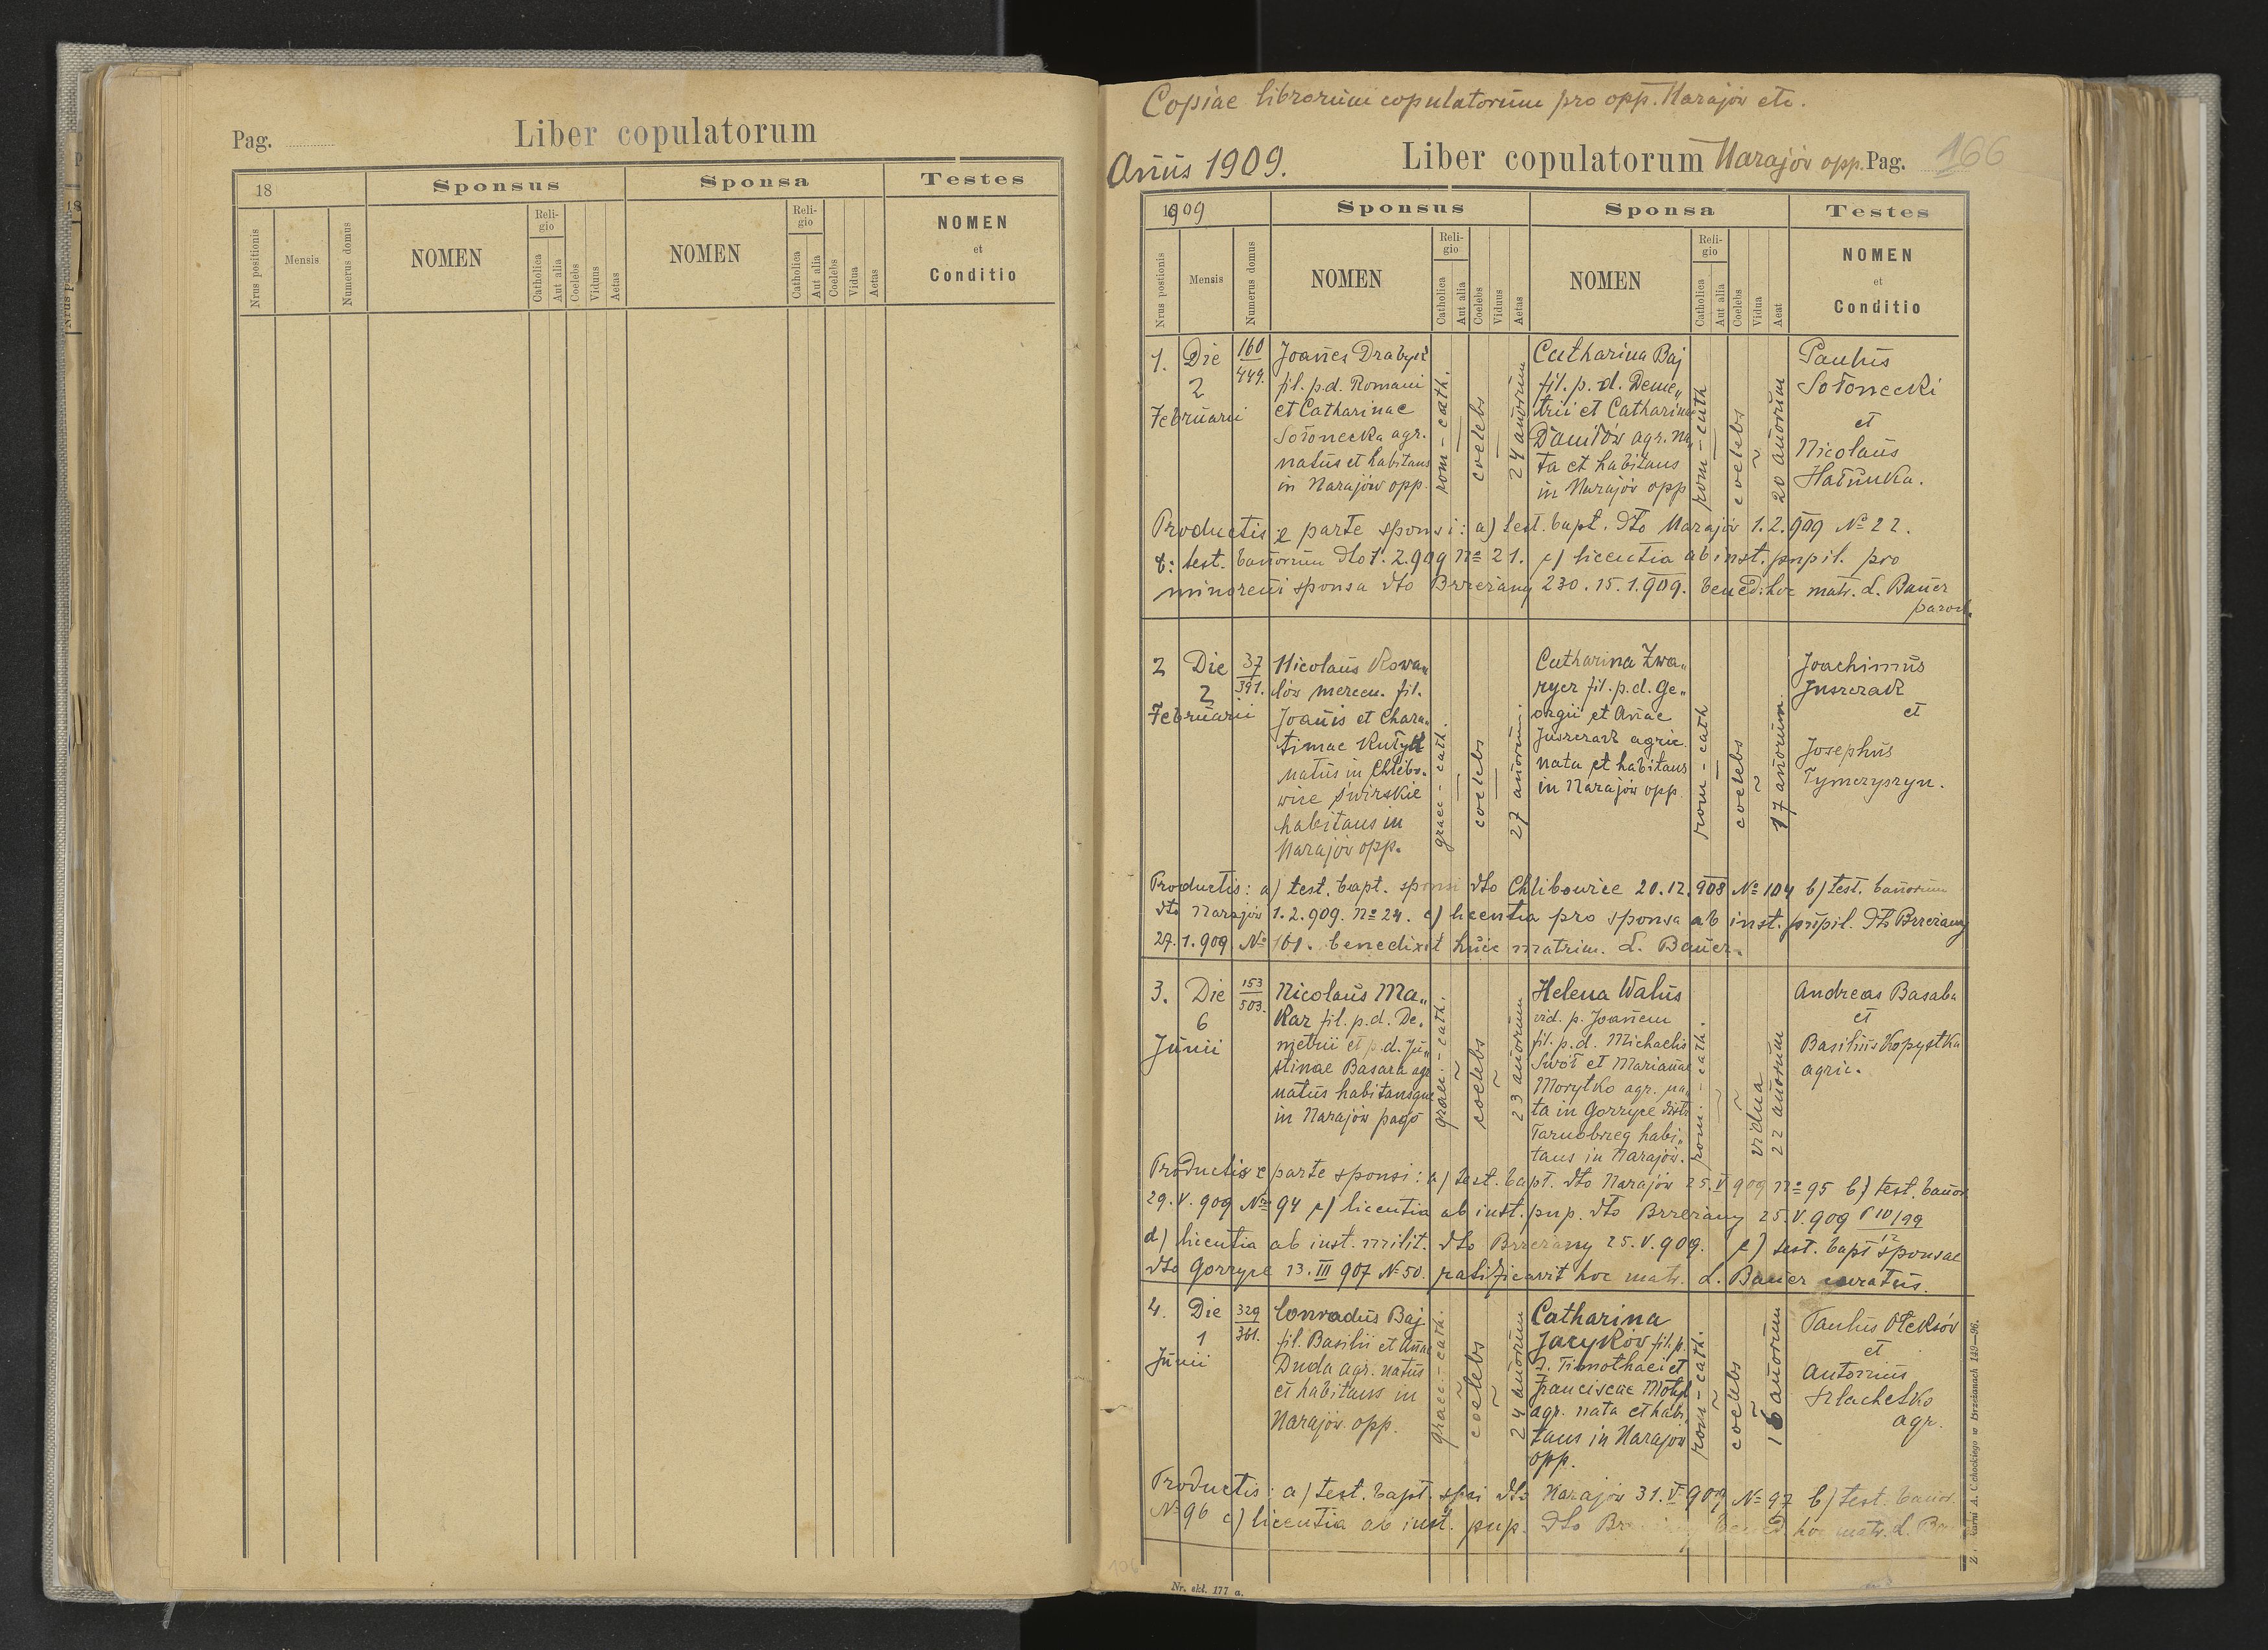 Pag.
Liber copulatorum
18
Sponsus
Sponsa
Testes
Nrus positionis
Mensis
Numerus domus
NOMEN
Reli-
gio
Catholica
Aut alia
Coelebs
Viduus
Aetas
NOMEN
Reli-
gio
Catholica
Aut alia
Coelebs
Vidua
Aetas
NOMEN
et
Conditio
Copiae librorum copulatorum pro opp. Narajów etc.
Annus 1909.
Liber copulatorum Narajów opp. Pag. 166
1909
Sponsus
Sponsa
Testes
Nrus postionis
Mensis
Numerus domus
NOMEN
Reli-
gio
Catholica
Aut alia
Coelebs
Viduus
Aetas
NOMEN
Reli-
gio
Catholica
Aut alia
Coelebs
Vidua
Aeat
NOMEN
et
Conditio
1.
Die
2
Februarii
160
449.
Joañes Drabyk
fil. p.d. Romani
et Catharinae
Sołonecka agr.
natus et habitans
in Narajów opp.
rom-cath.
coelebs
24 añorum
Catharina Baj
fil. p. d. Deme„
trii et Catharinae
Daniłów agr. na„
ta et habitans
in Narajów opp
rom-cath
coelebs
20 añorum
Paulus
Sołonecki
et
Nicolaus
Hałunka.
Productis e parte sponsi: a) test. bapt. dto Narajów 1.2.909 Nº 22.
b: test. bañorum dto 1.2.909 Nº 21. c) licentia ab inst. pupil. pro
minoreni sponsa dto Brzeżany 230.15.1.909. bened. hoc matr. L. Bauer
paroch.
2
Die
2
Februarii
37
391.
Nicolaus Kowa„
lów mercen. fil.
Joañis et Chara„
timae Kutyk
natus in Chlebo„
wice świrskie
habitans in
Narajów opp.
graec-cath.
coelebs
27 añorum.
Catharina Zwa„
rycz fil. p.d. Ge„
orgii et Añae
Juszczak agric.
nata et habitans
in Narajów opp.
rom-cath
coelebs
17 añorum
Joachimus
Juszczak
et
Josephus
Tymczyszyn.
Productis: a) test. bapt. sponsi dto Chlibowice 20.12.908 Nº 104 b) test. bañorum
dto Narajów 1.2.909. Nº 24. c) licentia pro sponsa ab inst. pupil. dto Brzeżany
27.1.909 Nº 101. benedixit huic matrim. L. Bauer.
3.
Die
6
Junii
153
503.
Nicolaus Ma„
kar fil. p.d. De„
metrii et p.d. Ju„
stinae Basara agr
natus habitansque
in Narajów pago
graec.-cath.
coelebs
23 añorum
Helena Walus
vid. p. Joañem
fil. p.d. Michaelis
et Marianae
Morytko agr. na„
ta in Gorzyce distr
Tarnobrzeg habi„
tans in Narajów.
rom.-cath.
vidua
22 añorum
Andreas Basaba
et
Basilius Kopystka
agric.
Productis e parte sponsi: a) test. bapt. dto Narajów 25.V 909 Nº 95 b) test. bañor.
29.V.909 Nº 94 c) licentia ab inst. pup. dto Brzeżany 25.V.909
d) licentia ab inst. milit. dto Brzeżany 25.V.909. e) test. bapt sponsae
dto Gorzyce 13.III 907 Nº 50. ratificavit hoc matr. L. Bauer curatus.
4.
Die
1
Junii
329
361.
Conradus Baj
fil. Basilii et Añae
Duda agr. natus
et habitans in
Narajów opp.
graec.-cath.
coelebs
24 añorum
Catharina
Jacyków fil. p.
d. Timothaei et
Franciscae Motyl
agr. nata et habi„
tans in Narajów
opp.
rom-cath.
coelebs
16 añorum
Paulus Ołeksów
et
Antonius
Szlachetko
agr.
Productis: a) test. bapt. spsi dto Narajów 31.V 909 Nº 97 b) test. bañor.
Nº 96 c) licentia ab inst. pup. dto bened. hoc matr. L.
Nr. skł. 177 a.